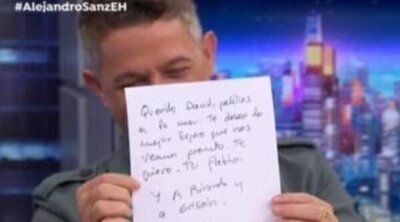 #AlejandroSanzEH
Querido David, pelillos
a la mar. Te deseo lo
mejor Espero que nos
veamos pronto. Te
quiero. Tu Pablo.
Y A Ricardo y
a